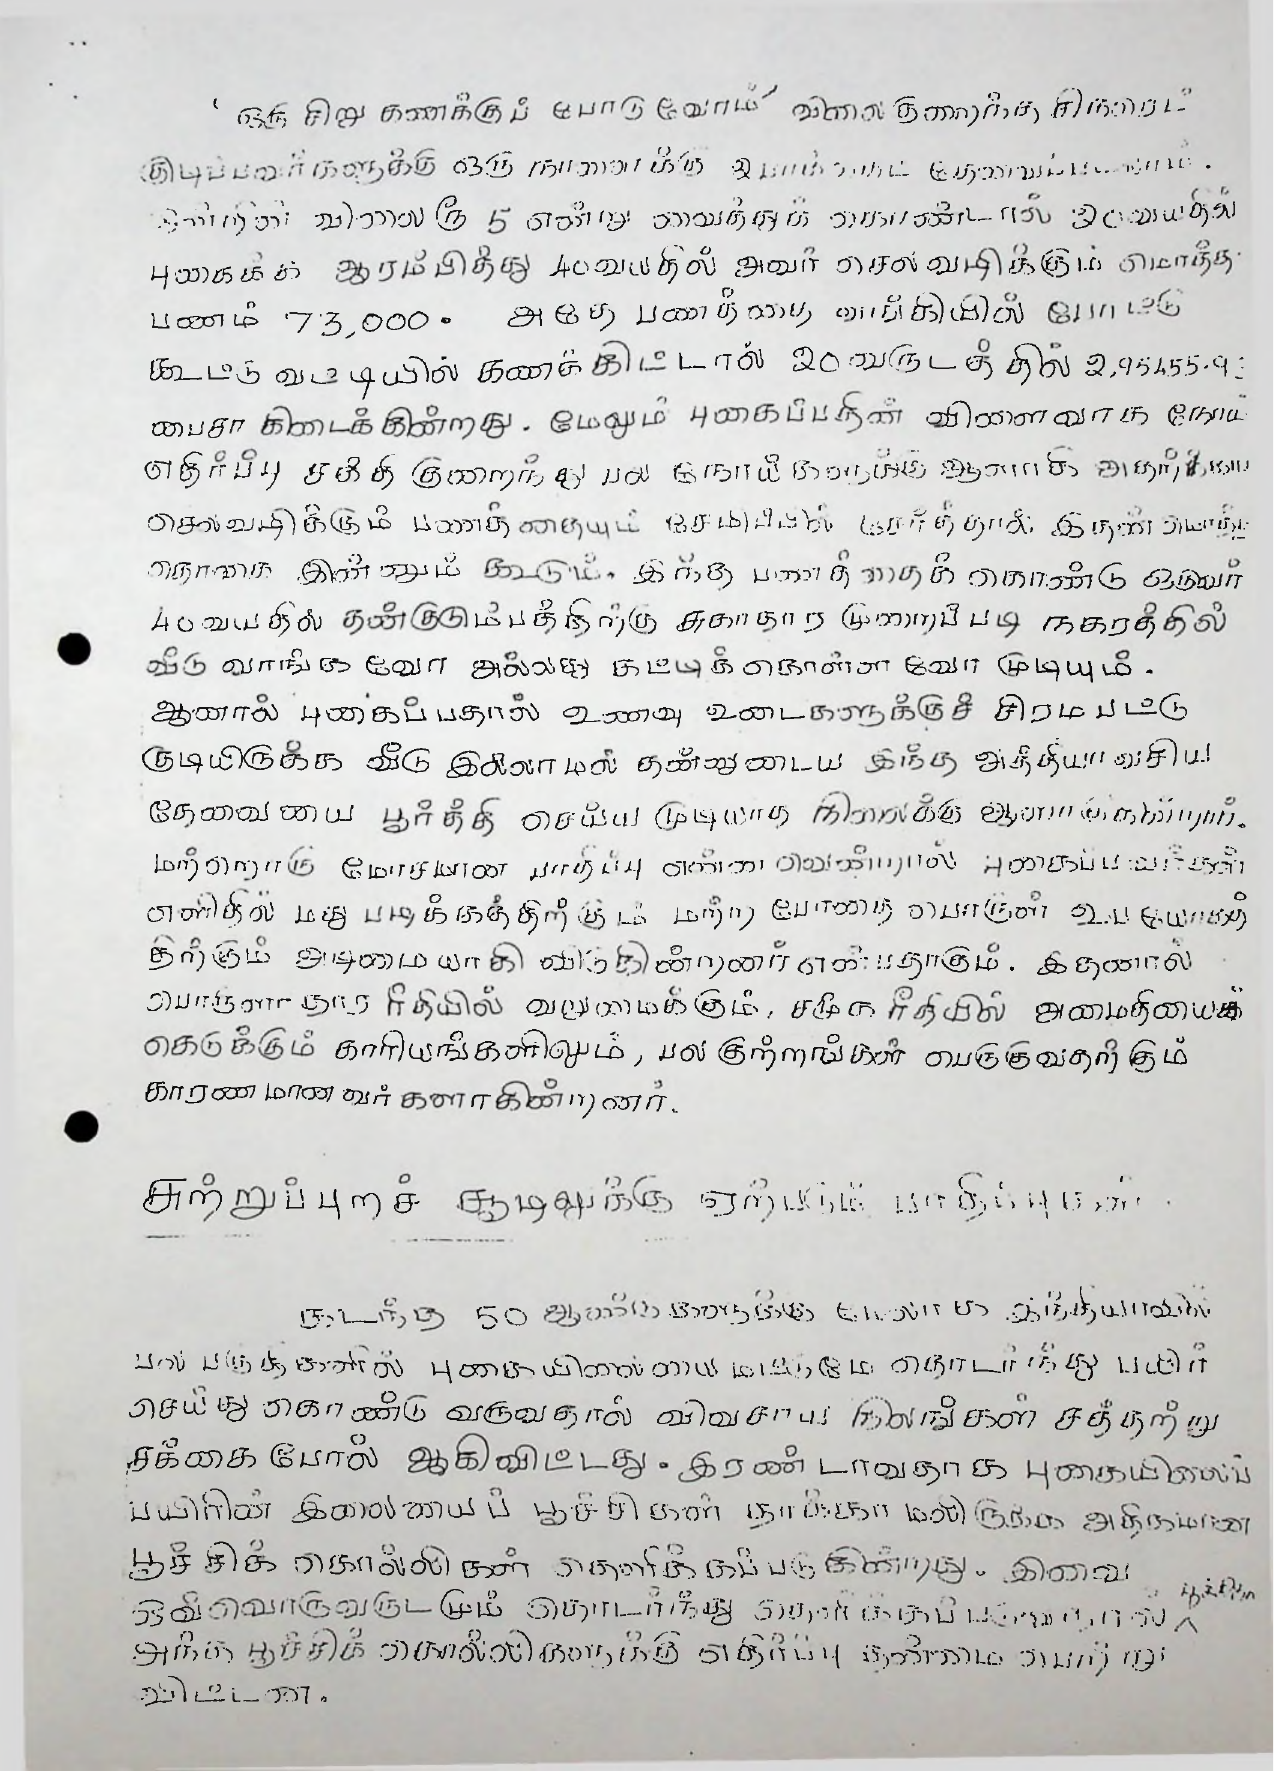 'ஒரு சிறு கணக்குப் போடுவோம்' விலை குறைந்த சிகரெட்
குடிப்பவர்களுக்கு ஒரு நாளைக்கு 2 பாக்கெட் தேவைப்படலாம்.
விலை ரூ 5 என்று வைத்துக் கொண்டால் 20 வயதில்
புகைக்க ஆரம்பித்து 40 வயதில் அவர் செலவழிக்கும் மொத்த
பணம் 73,000. அதே பணத்தை வங்கியில் போட்டு
கூட்டு வட்டியில் கணக்கிட்டால் 20 வருடத்தில் 2,95455.9
பைசா கிடைக்கின்றது. மேலும் புகைப்பதின் விளைவாக நோய்
எதிர்ப்பு சக்தி குறைந்து பல நோய்களுக்கு ஆளாகி அதற்காக
செலவழிக்கும் பணத்தையும் சேமிப்பில் சேர்த்தால் இதன் மொத்த
தொகை இன்னும் கூடும். இந்த பணத்தைக் கொண்டு ஒருவர்
40 வயதில் தன்குடும்பத்திற்கு சுகாதார முறைப்படி நகரத்தில்
வீடு வாங்கவோ அல்லது கட்டிக்கொள்ளவோ முடியும்.
ஆனால் புகைப்பதால் உணவு உடைகளுக்குச் சிரமபட்டு
குடியிருக்க வீடு இல்லாமல் தன்னுடைய இந்த அத்தியாவசிய
தேவையை பூர்த்தி செய்ய முடியாத நிலைக்கு ஆளாகின்றார்.
மற்றொரு மோசமான பாதிப்பு என்ன வென்றால் புகைப்பவர்கள்
எளிதில் மது படிக்கத்திற்கும் மற்ற போதை பொருள் உபயோகத்
திற்கும் அடிமையாகி விடுகின்றனர் என்பதாகும். இதனால்
பொருளாதார ரீதியில் வறுமைக்கும், சமூக ரீதியில் அமைதியைக்
கெடுக்கும் காரியங்களிலும், பல குற்றங்கள் பெருகுவதற்கும்
காரணமானவர்களாகின்றனர்.
சுற்றுப்புறச் சூழலுக்கு ஏற்படும் பாதிப்புகள்.
கடந்த 50 ஆண்டுகளுக்கு மேலாக இந்தியாவில்
பல பகுதிகளில் புகையிலையை மட்டுமே தொடர்ந்து பயிர்
செய்து கொண்டு வருவதால் விவசாய நிலங்கள் சத்தற்று
சக்கை போல் ஆகிவிட்டது. இரண்டாவதாக புகையிலைப்
பயிரின் இலையைப் பூச்சிகள் தாக்காமலிருக்க அதிகமான
பூச்சிக் கொல்லிகள் தெளிக்கப்படுகின்றது. இவை
ஒவ்வொருவருடமும் தொடர்ந்து தெளிக்கப்படுவதால் ^ பூச்சிகள்
அந்த பூச்சிக் கொல்லிகளுக்கு எதிர்ப்பு தன்மை பெற்று
விட்டன.